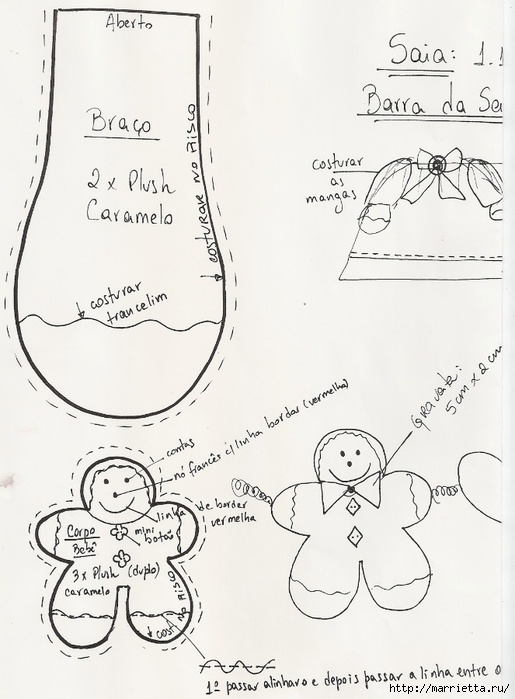 Aberto
Braço
2 x Plush
Caramelo
costurar no risco
costurar
trancelim
Saia: 1.1
Barra da Sa
costurar
as
mangas
Gravata:
5cm x 2 cm
contas
nó francês c/ linha bordar (vermelha)
linha de border
vermelha
mini
botão
Corpo
Bebê
3 x Plush (duplo)
caramelo
cost. no risco
1º passar alinhavo e depois passar a linha entre o
http://marrietta.ru/